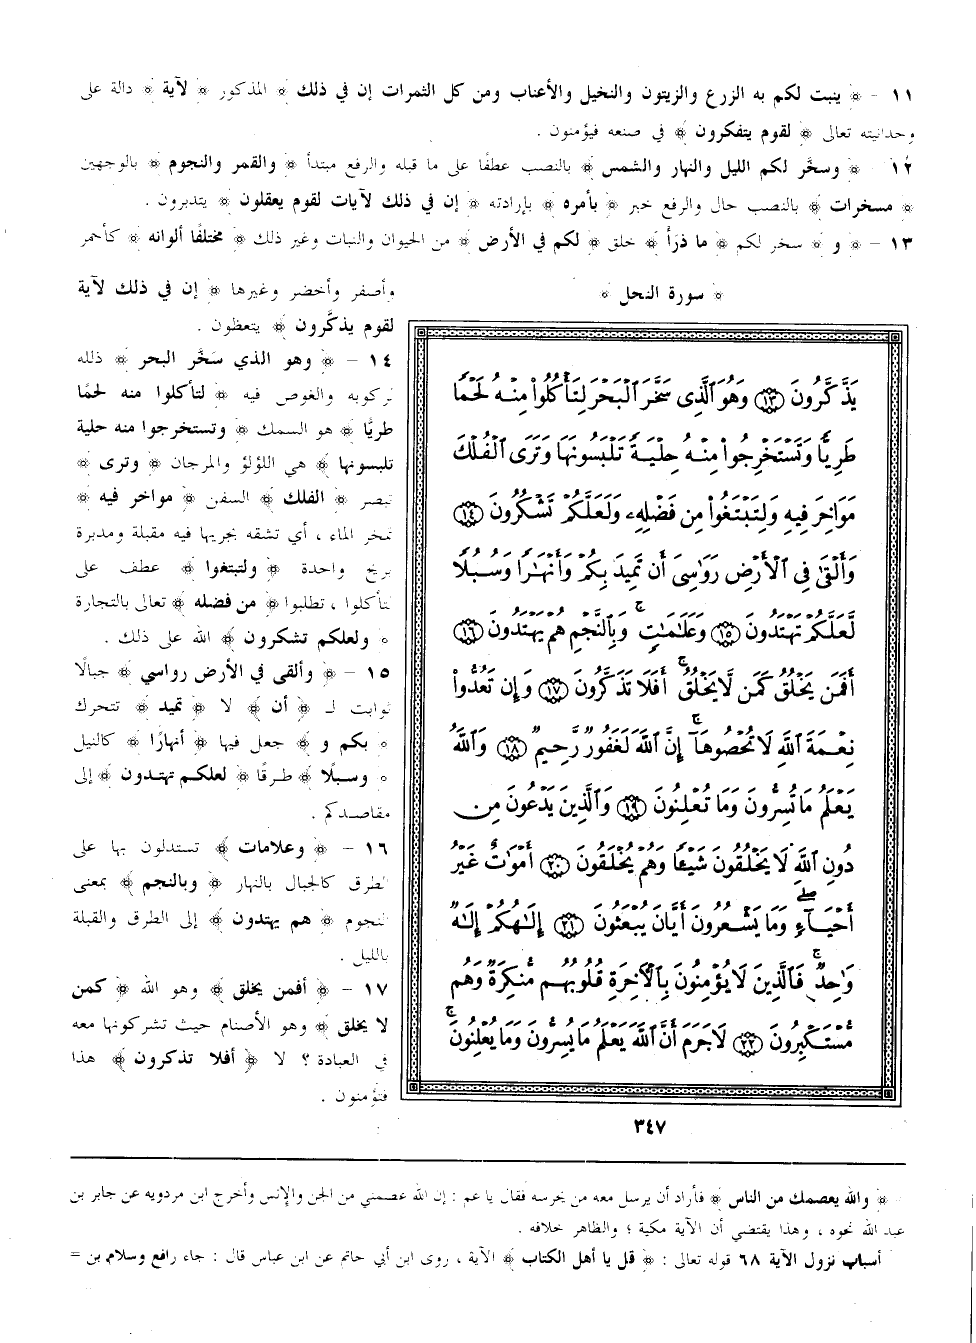 ١١ - ﴿ ينبت لكم به الزرع والزيتون والنخيل والأعناب ومن كل الثمرات إن في ذلك ﴾ المذكور ﴿ لآية ﴾ دالة على
وحدانيته تعالى ﴿ لقوم يتفكرون ﴾ في صنعه فيؤمنون .
١٢ - ﴿ وسخَّر لكم الليل والنهار والشمس ﴾ بالنصب عطفًا على ما قبله والرفع مبتدأ ﴿ والقمر والنجوم ﴾ بالوجهين
﴿ مسخرات ﴾ بالنصب حال والرفع خبر ﴿ بأمره ﴾ بإرادته ﴿ إن في ذلك لآيات لقوم يعقلون ﴾ يتدبرون .
١٣ - ﴿ و ﴾ سخر لكم ﴿ ما ذرَأ ﴾ خلق ﴿ لكم في الأرض ﴾ من الحيوان والنبات وغير ذلك ﴿ مختلفًا ألوانه ﴾ كأحمر
وأصفر وأخضر وغيرها ﴿ إن في ذلك لآية
لقوم يذكَّرون ﴾ يتعظون .
١٤ - ﴿ وهو الذي سَخَّر البحر ﴾ ذلله
لركوبه والغوص فيه ﴿ لتأكلوا منه لحمًا
طريًّا ﴾ هو السمك ﴿ وتستخرجوا منه حلية
تلبسونها ﴾ هي اللؤلؤ والمرجان ﴿ وترى ﴾
تبصر ﴿ الفلك ﴾ السفن ﴿ مواخر فيه ﴾
تمخر الماء ، أي تشقه بجريها فيه مقبلة ومدبرة
بريح واحدة ﴿ ولتبتغوا ﴾ عطف على
لتأكلوا ، تطلبوا ﴿ من فضله ﴾ تعالى بالتجارة
﴿ ولعلكم تشكرون ﴾ الله على ذلك .
١٥ - ﴿ وألقى في الأرض رواسي ﴾ جبالًا
ثوابت لـ ﴿ أن ﴾ لا ﴿ تميد ﴾ تتحرك
﴿ بكم و ﴾ جعل فيها ﴿ أنهارًا ﴾ كالنيل
﴿ وسبلًا ﴾ طرقًا ﴿ لعلكم تهتدون ﴾ إلى
مقاصدكم .
١٦ - ﴿ وعلامات ﴾ تستدلون بها على
الطرق كالجبال بالنهار ﴿ وبالنجم ﴾ بمعنى
النجوم ﴿ هم يهتدون ﴾ إلى الطرق والقبلة
بالليل .
١٧ - ﴿ أفمن يخلق ﴾ وهو الله ﴿ كمن
لا يخلق ﴾ وهو الأصنام حيث تشركونها معه
في العبادة ؟ لا ﴿ أفلا تذكرون ﴾ هذا
فتؤمنون .
﴿ سورة النحل ﴾
يَذَّكَّرُونَ ١٣ وَهُوَ الَّذِى سَخَّرَ الْبَحْرَ لِتَأْكُلُوا۟ مِنْهُ لَحْمًا
طَرِيًّا وَتَسْتَخْرِجُوا۟ مِنْهُ حِلْيَةً تَلْبَسُونَهَا وَتَرَى الْفُلْكَ
مَوَاخِرَ فِيهِ وَلِتَبْتَغُوا۟ مِن فَضْلِهِۦ وَلَعَلَّكُمْ تَشْكُرُونَ ١٤
وَأَلْقَىٰ فِى الْأَرْضِ رَوَاسِىَ أَن تَمِيدَ بِكُمْ وَأَنْهَارًا وَسُبُلًا
لَّعَلَّكُمْ تَهْتَدُونَ ١٥ وَعَلَامَاتٍ ۚ وَبِالنَّجْمِ هُمْ يَهْتَدُونَ ١٦
أَفَمَن يَخْلُقُ كَمَن لَّا يَخْلُقُ ۗ أَفَلَا تَذَكَّرُونَ ١٧ وَإِن تَعُدُّوا۟
نِعْمَةَ اللَّهِ لَا تُحْصُوهَآ ۗ إِنَّ اللَّهَ لَغَفُورٌ رَّحِيمٌ ١٨ وَاللَّهُ
يَعْلَمُ مَا تُسِرُّونَ وَمَا تُعْلِنُونَ ١٩ وَالَّذِينَ يَدْعُونَ مِن
دُونِ اللَّهِ لَا يَخْلُقُونَ شَيْـًٔا وَهُمْ يُخْلَقُونَ ٢٠ أَمْوَاتٌ غَيْرُ
أَحْيَآءٍ ۖ وَمَا يَشْعُرُونَ أَيَّانَ يُبْعَثُونَ ٢١ إِلَٰهُكُمْ إِلَٰهٌ
وَاحِدٌ ۚ فَالَّذِينَ لَا يُؤْمِنُونَ بِالْآخِرَةِ قُلُوبُهُم مُّنكِرَةٌ وَهُم
مُّسْتَكْبِرُونَ ٢٢ لَا جَرَمَ أَنَّ اللَّهَ يَعْلَمُ مَا يُسِرُّونَ وَمَا يُعْلِنُونَ ۚ
٣٤٧
= ﴿ والله يعصمك من الناس ﴾ فأراد أن يرسل معه من يحرسه فقال يا عم : إن الله عصمني من الجن والإنس وأخرج ابن مردويه عن جابر بن
عبد الله نحوه ، وهذا يقتضي أن الآية مكية ؛ والظاهر خلافه .
أسباب نزول الآية ٦٨ قوله تعالى : ﴿ قل يا أهل الكتاب ﴾ الآية ، روى ابن أبي حاتم عن ابن عباس قال : جاء رافع وسلام بن =